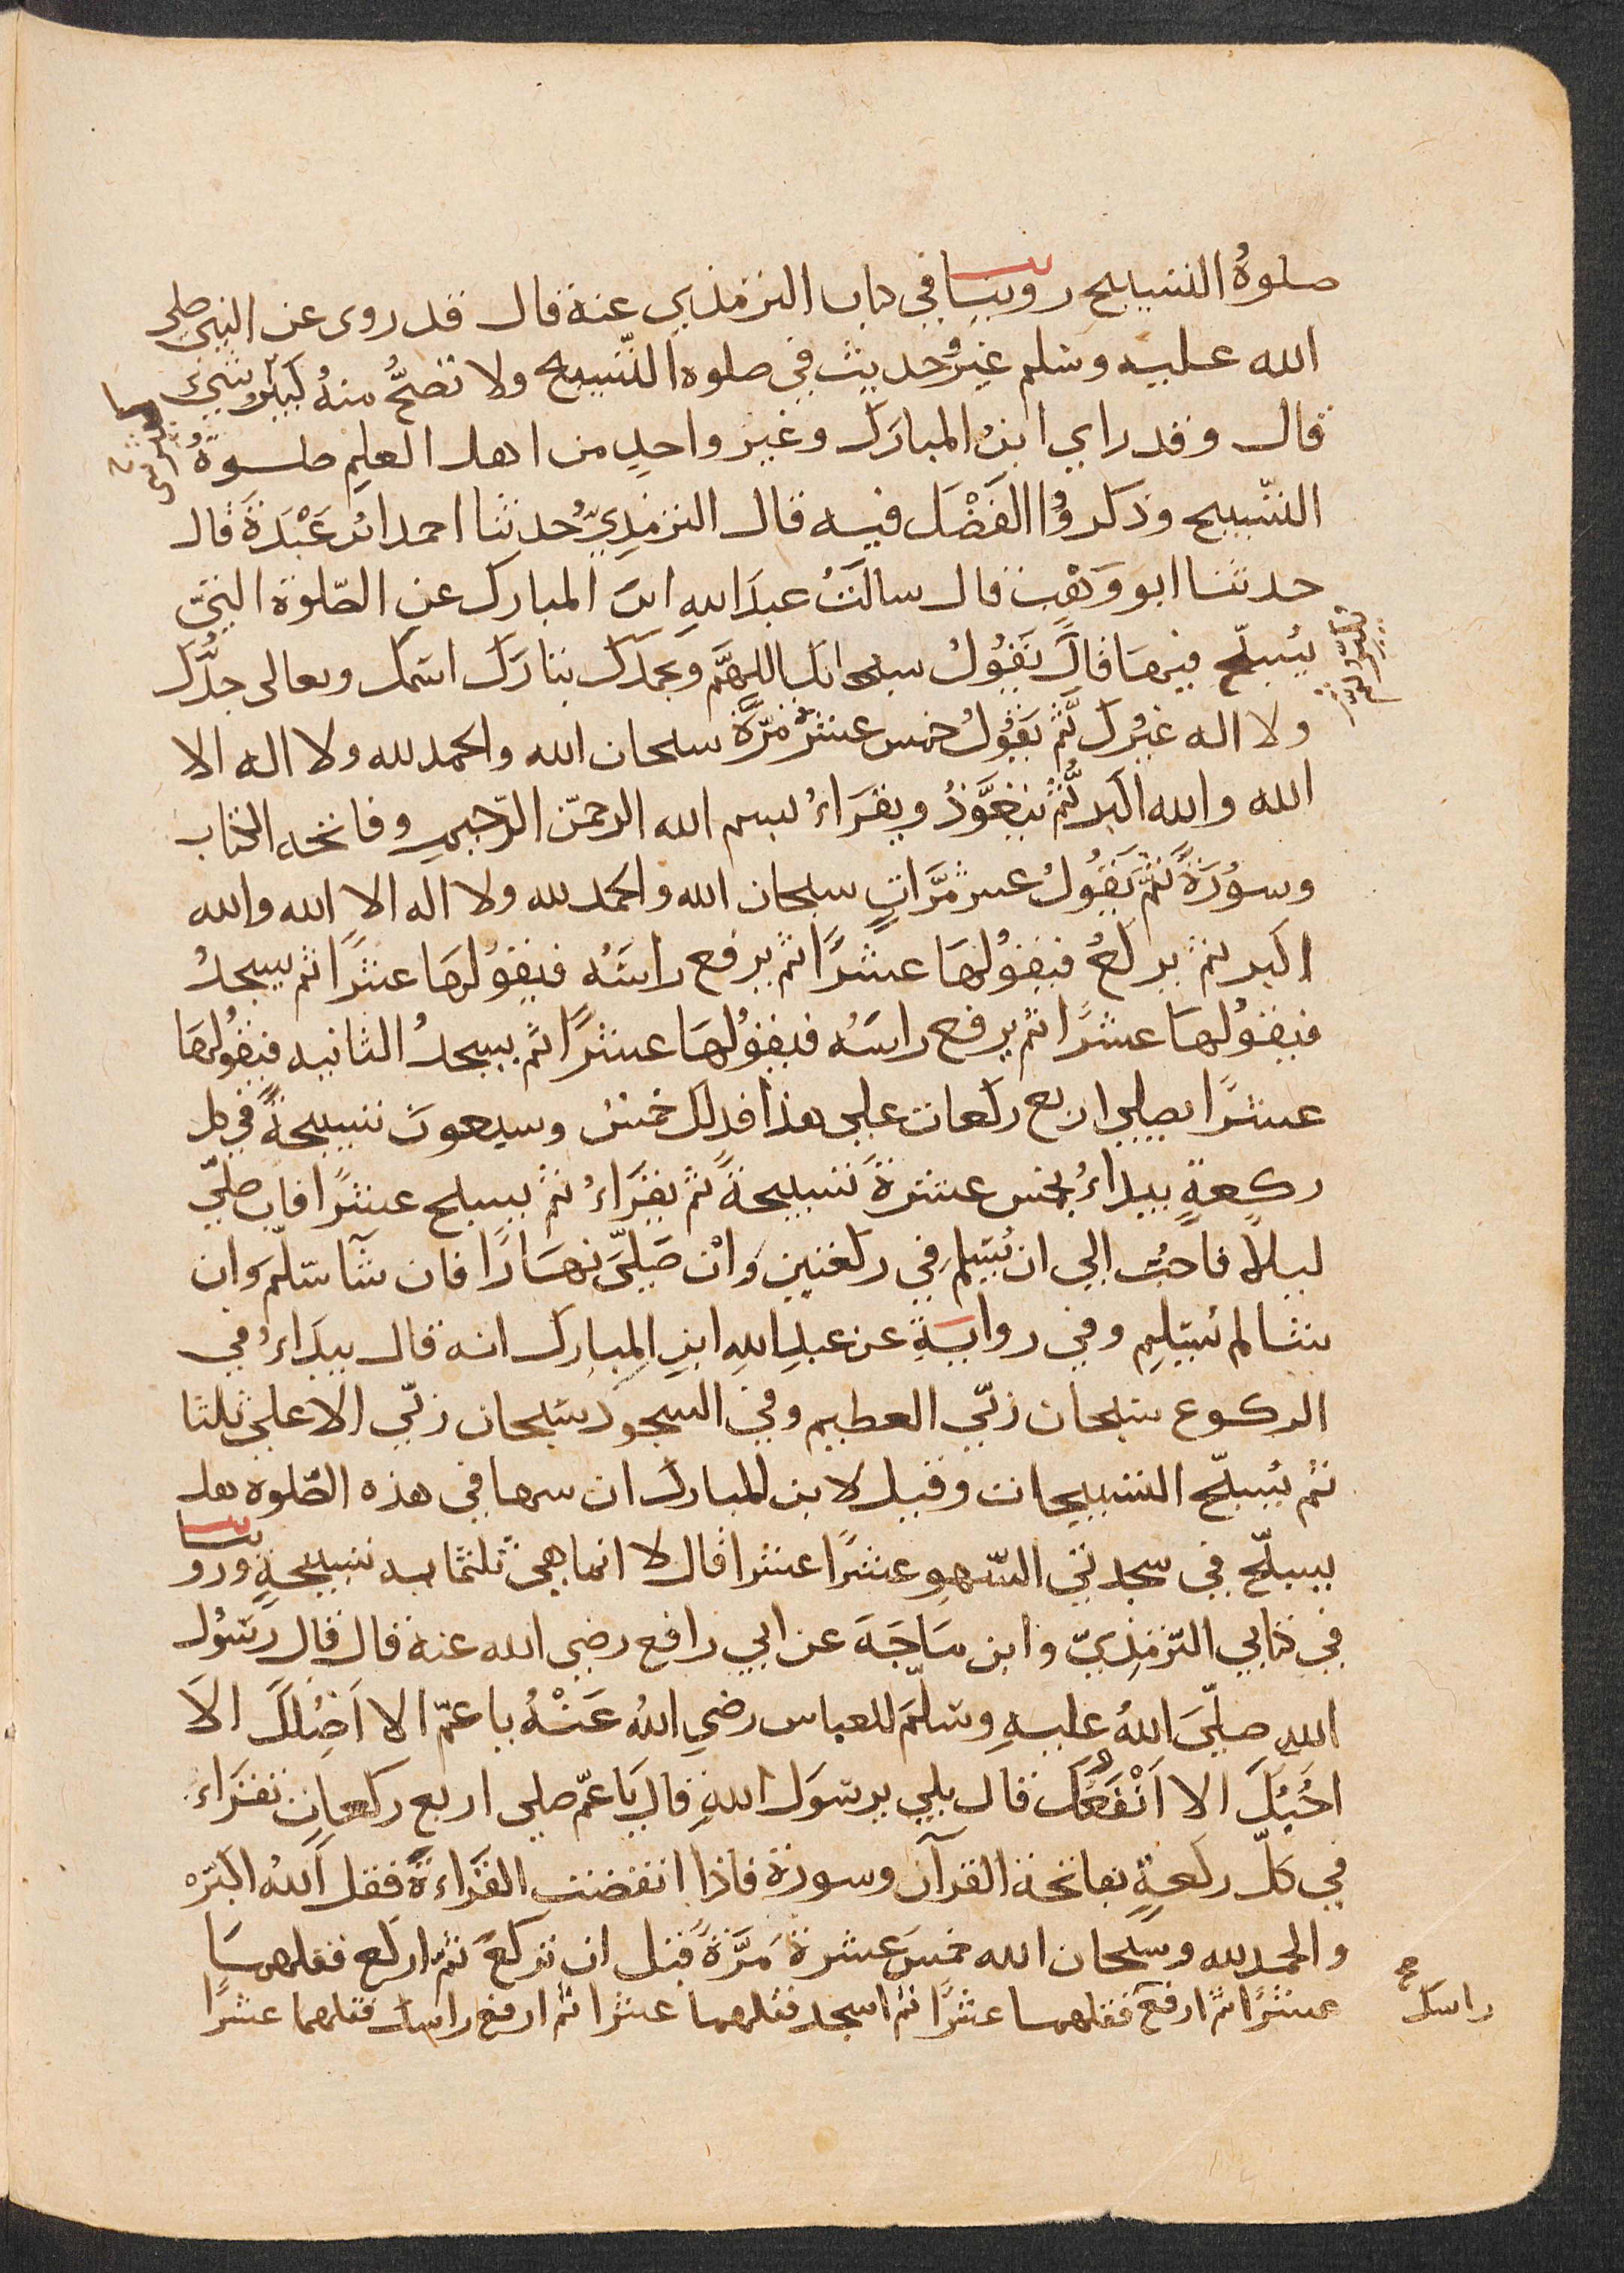 صلوةُ التسبيح روينا في كتاب الترمذي عنه قال قد روى عن النبي صلى
الله عليه وسلم غيرُ حديث في صلوه التّسبيح ولا تصحُّ منهُ كبيرُ شيءٍ
قال وقد راي ابنُ المبارك وغير واحدٍ من اهل العلمِ صلوةُ
التّسبيح وذكروُا الفَضْلَ فيه قال الترمذِيّ حُدثنا احمد ابن عَبْدَةَ قال
حدثنا ابو وَهْبٍ قال سالَتُ عبدَ اللهِ ابن المبارك عن الصّلوة التي
يُسبّح فيها قالَ يَقُولُ سبحانك اللهمَّ وبحمدك تبارك اسمك وتعالى جدُّك
ولا اله غيرُك ثمَّ يَقُولُ خمس عشرَ مَرَّةً سبحان الله والحمد لله ولا اله الا
الله والله اكبر ثُمَّ يتعَوَّذُ ويقرَاءُ بسم الله الرحمن الرّحيمِ وفاتحه الكتاب
وسوُرَةً ثمَّ يَقُولُ عشر مَرَّاتٍ سبحان الله والحمد لله ولا اله الا الله والله
اكبر ثم يركعُ فيقوُلها عشرًا ثم يرفع راسَه فيقوُلها عشرًا ثم يسجدُ
فيقوُلها عشرًا ثم يرفع راسَه فيقوُلها عشرًا ثم يسجدُ الثانيه فيقوُلهَا
عشرًا يصلي اربع ركعات على هذا فدلك خمسٌ وسبعون تسبيحةً في كل
ركعةٍ يبداءُ بخمس عشرةَ تَسبيحةً ثم يقرَاءُ ثم يسبح عشرًا فان صلّي
ليلاً فاحبُّ الي ان يُسَلِّم في ركعتين وانْ صَلّيَ نهارًا فان شآ سَلّم وان
شا لم يُسَلِم وفي روايةٍ عن عبدِ اللهِ ابنِ المبارك انه قال يبدَاءُ في
الركوع سبحان ربّي العظيم وفي السجود سبحان ربّي الاعلى ثلثا
ثم يُسبّح التسبيحات وقيل لابن المبارك ان سها في هذه الصّلوه هل
يسبّح في سجدتي السّهو عشرًا عشرا قال لا انما هي ثلثمايه تسبيحةٍ وروينا
في كتابي التّرمذيّ وابن مَاجَه عن ابي رافع رضي الله عنه قال قال رسُول
اللهِ صلّيَ اللهُ عليهِ وسَلّمَ للعباس رضي اللهُ عَنْهُ يا عمّ الا اَصُلكَ الاَ
احُبُكَ الا اَنْفَعُكَ قال بلي يرسَول اللهِ قال يَا عمّ صلي اربع ركعاتٍ تقرَاء
في كلّ ركعةٍ بفاتحة القرآن وسورة فاذا انقضت القراءةُ فقل اللهُ اكبرُ
والحمد لله وسبحان الله خمسَ عشرةَ مَرَّةً قبل ان تركعَ ثم اركع فقلها
عشرًا ثم ارفع فقلها عشرًا ثم اسجد فقلها عشرا ثم ارفع راسك فقلها عشرًا
راسك صح